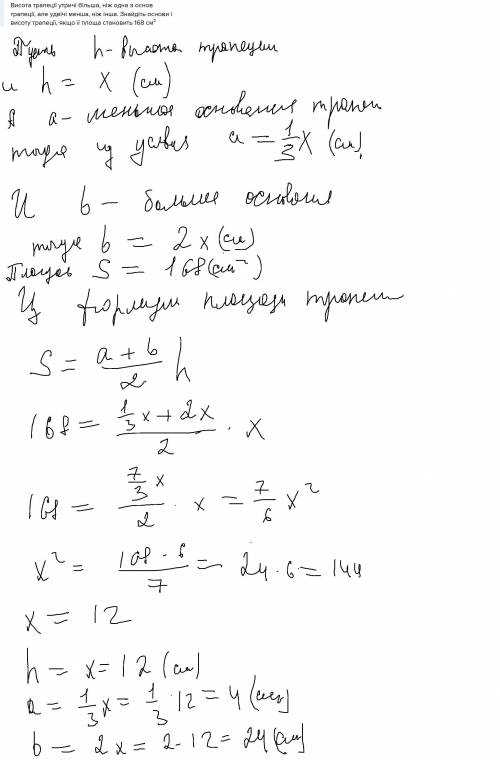 Висота трапеції утричі більша, ніж одна з основ
трапеції, але удвічі менша, ніж інша. Знайдіть основи і
висоту трапеції, якщо її площа становить 168 см²
Пусть h - высота трапеции
и h = x (см)
А a - меньшое основания трапец
тогда из условия a = 1/3 x (см)
И b - больше основания
тогда b = 2x (см)
Площадь S = 168 (см²)
Из формулы площади трапец
S = (a + b)/2 h
168 = (1/3 x + 2x)/2 · x
168 = (7/3 x)/2 · x = 7/6 x²
x² = (168 · 6)/7 = 24 · 6 = 144
x = 12
h = x = 12 (см)
a = 1/3 x = 1/3 · 12 = 4 (см)
b = 2x = 2 · 12 = 24 (см)